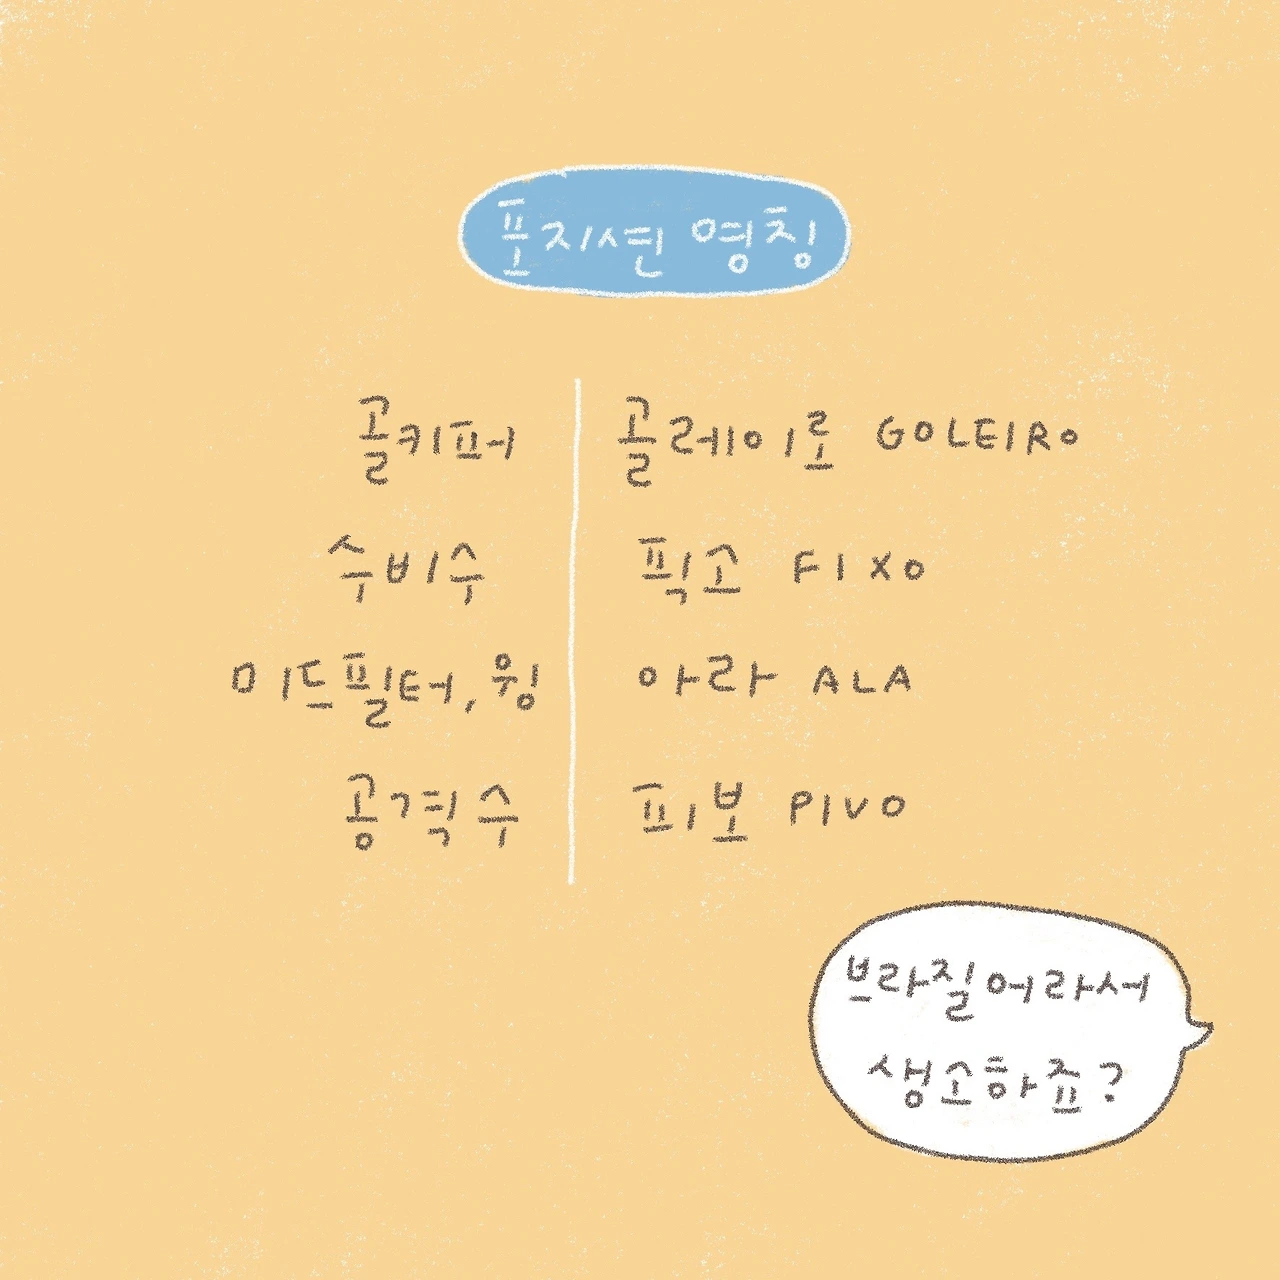 포지션 명칭
골키퍼 골레이로 GOLEIRO
수비수 픽소 FIXO
미드필터, 윙 아라 ALA
공격수 피보 PIVO
브라질어라서
생소하죠?